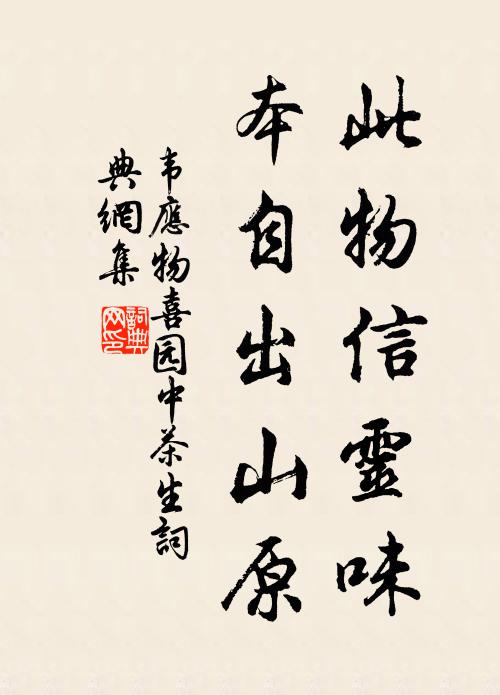 此物信靈味
本自出山原
韦應物喜园中茶生詞
典網集
詞典网印